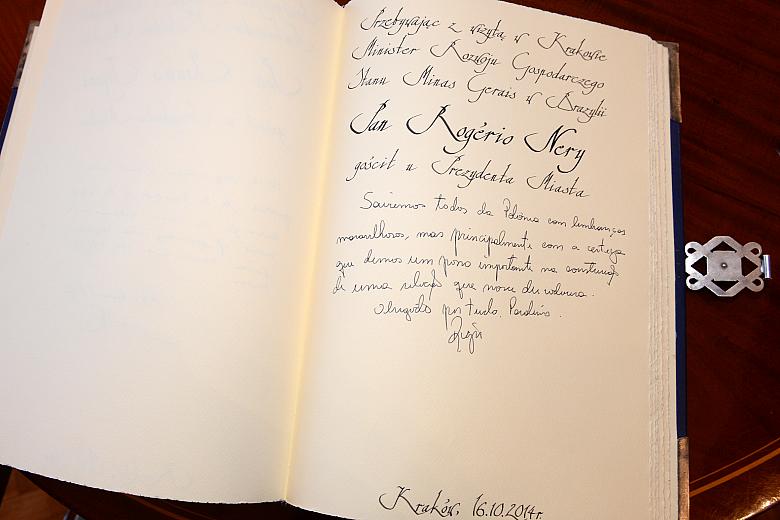 Przebywając z wizytą w Krakowie
Minister Rozwoju Gospodarczego
Stanu Minas Gerais w Brazylii
Pan Rogério Nery
gościł u Prezydenta Miasta
Sairemos todos da Polônia com lembranças
maravilhosas, mas principalmente com a certeza
que demos um passo importante na construção
de uma relação que nove
Obrigado por tudo.
Kraków, 16.10.2014r.